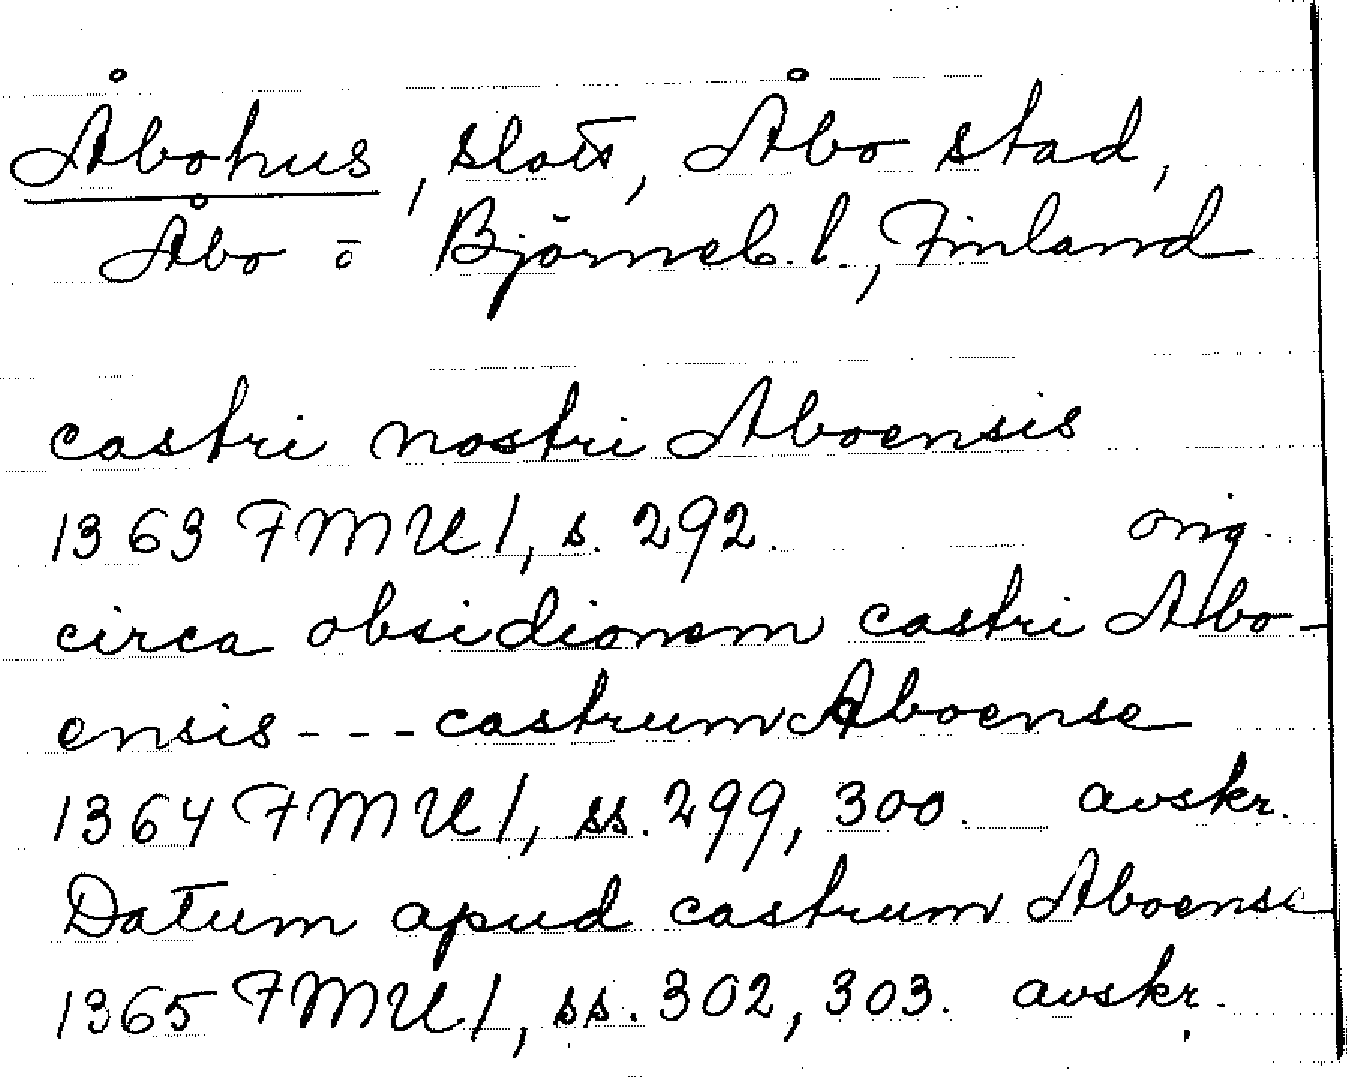 Åbohus, slott, Åbo stad,
Åbo o Björneb. l., Finland
castri nostri Aboensis
1363 FMU 1, s. 292. orig.
circa obsidionem castri Abo-
ensis - - - castrum Aboense
1364 FMU 1, ss. 299, 300. avskr.
Datum apud castrum Aboense
1365 FMU 1, ss. 302, 303. avskr.